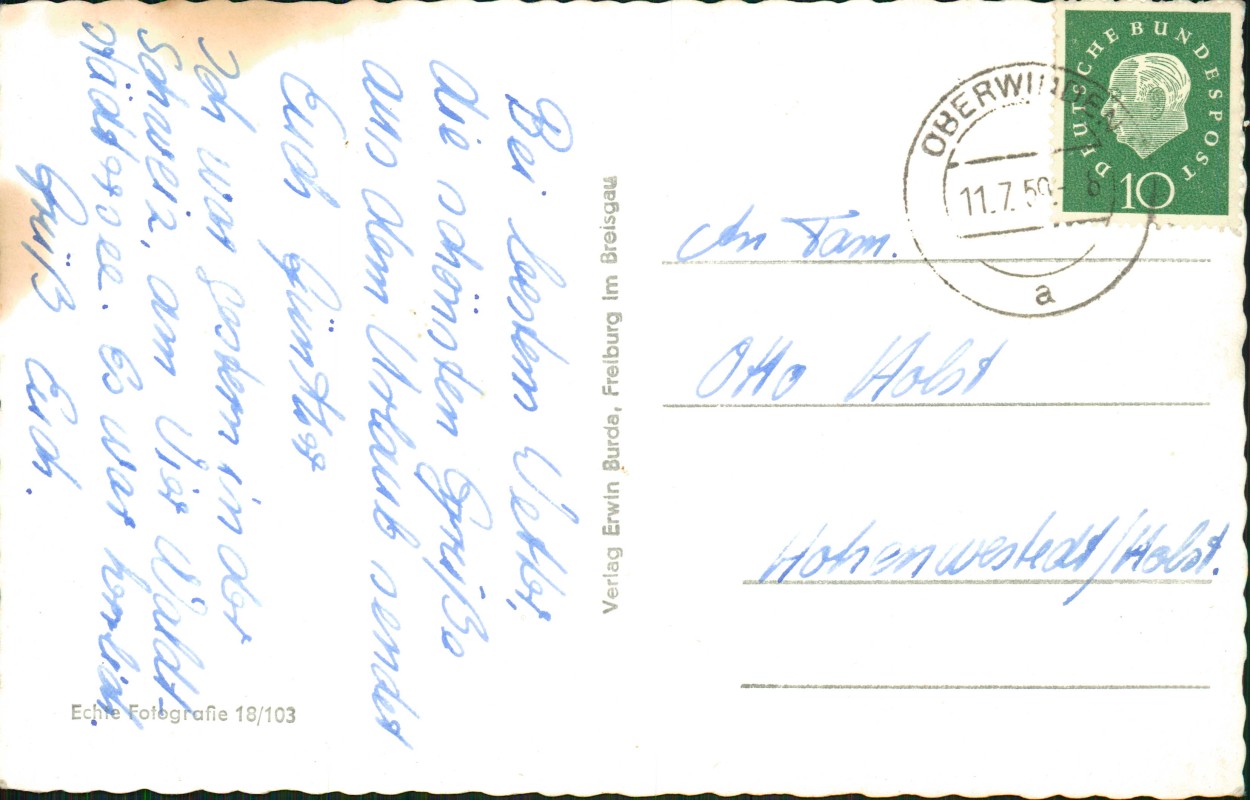 Bei besten Wetter,
die schönsten Grüße
aus dem Urlaub sendet
Euch Günther
Ich war gestern in der
Schweiz, am Vier Wald-
städersee. Es war herlich.
Grüß Euch.
Echte Fotografie 18/103
Verlag Erwin Burda, Freiburg im Breisgau
DEUTSCHE BUNDESPOST
10
OBERWINDEN
11.7.59-8
a
An Fam.
Otto Holst
Hohenwestedt/Holst.